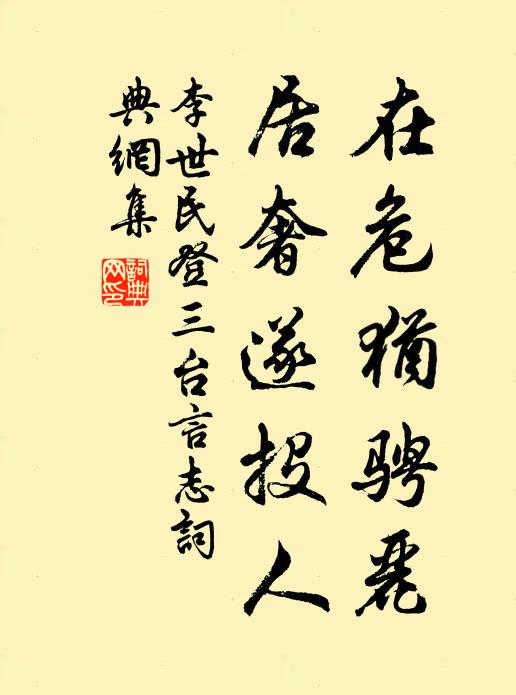 在危猶骋麗
居奢遂投人
李世民登三台言志詞
典網集
詞典
网印